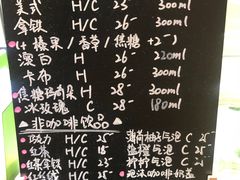 美式 H/C 25- 300ml
拿铁 H/C 26- 300ml
(+榛果/香草/焦糖 +2-)
澳白 H 26- 220ml
卡布 H 26- 300ml
焦糖玛奇朵 H 28- 300ml
冰玫瑰 C 28- 180ml
非咖啡饮品
巧力 H/C 25-
红茶 H/C 15-
红茶拿铁 H/C 23-
薄荷柚子气泡 C 25-
盐橙气泡 C 25-
柠柠气泡 C 25-